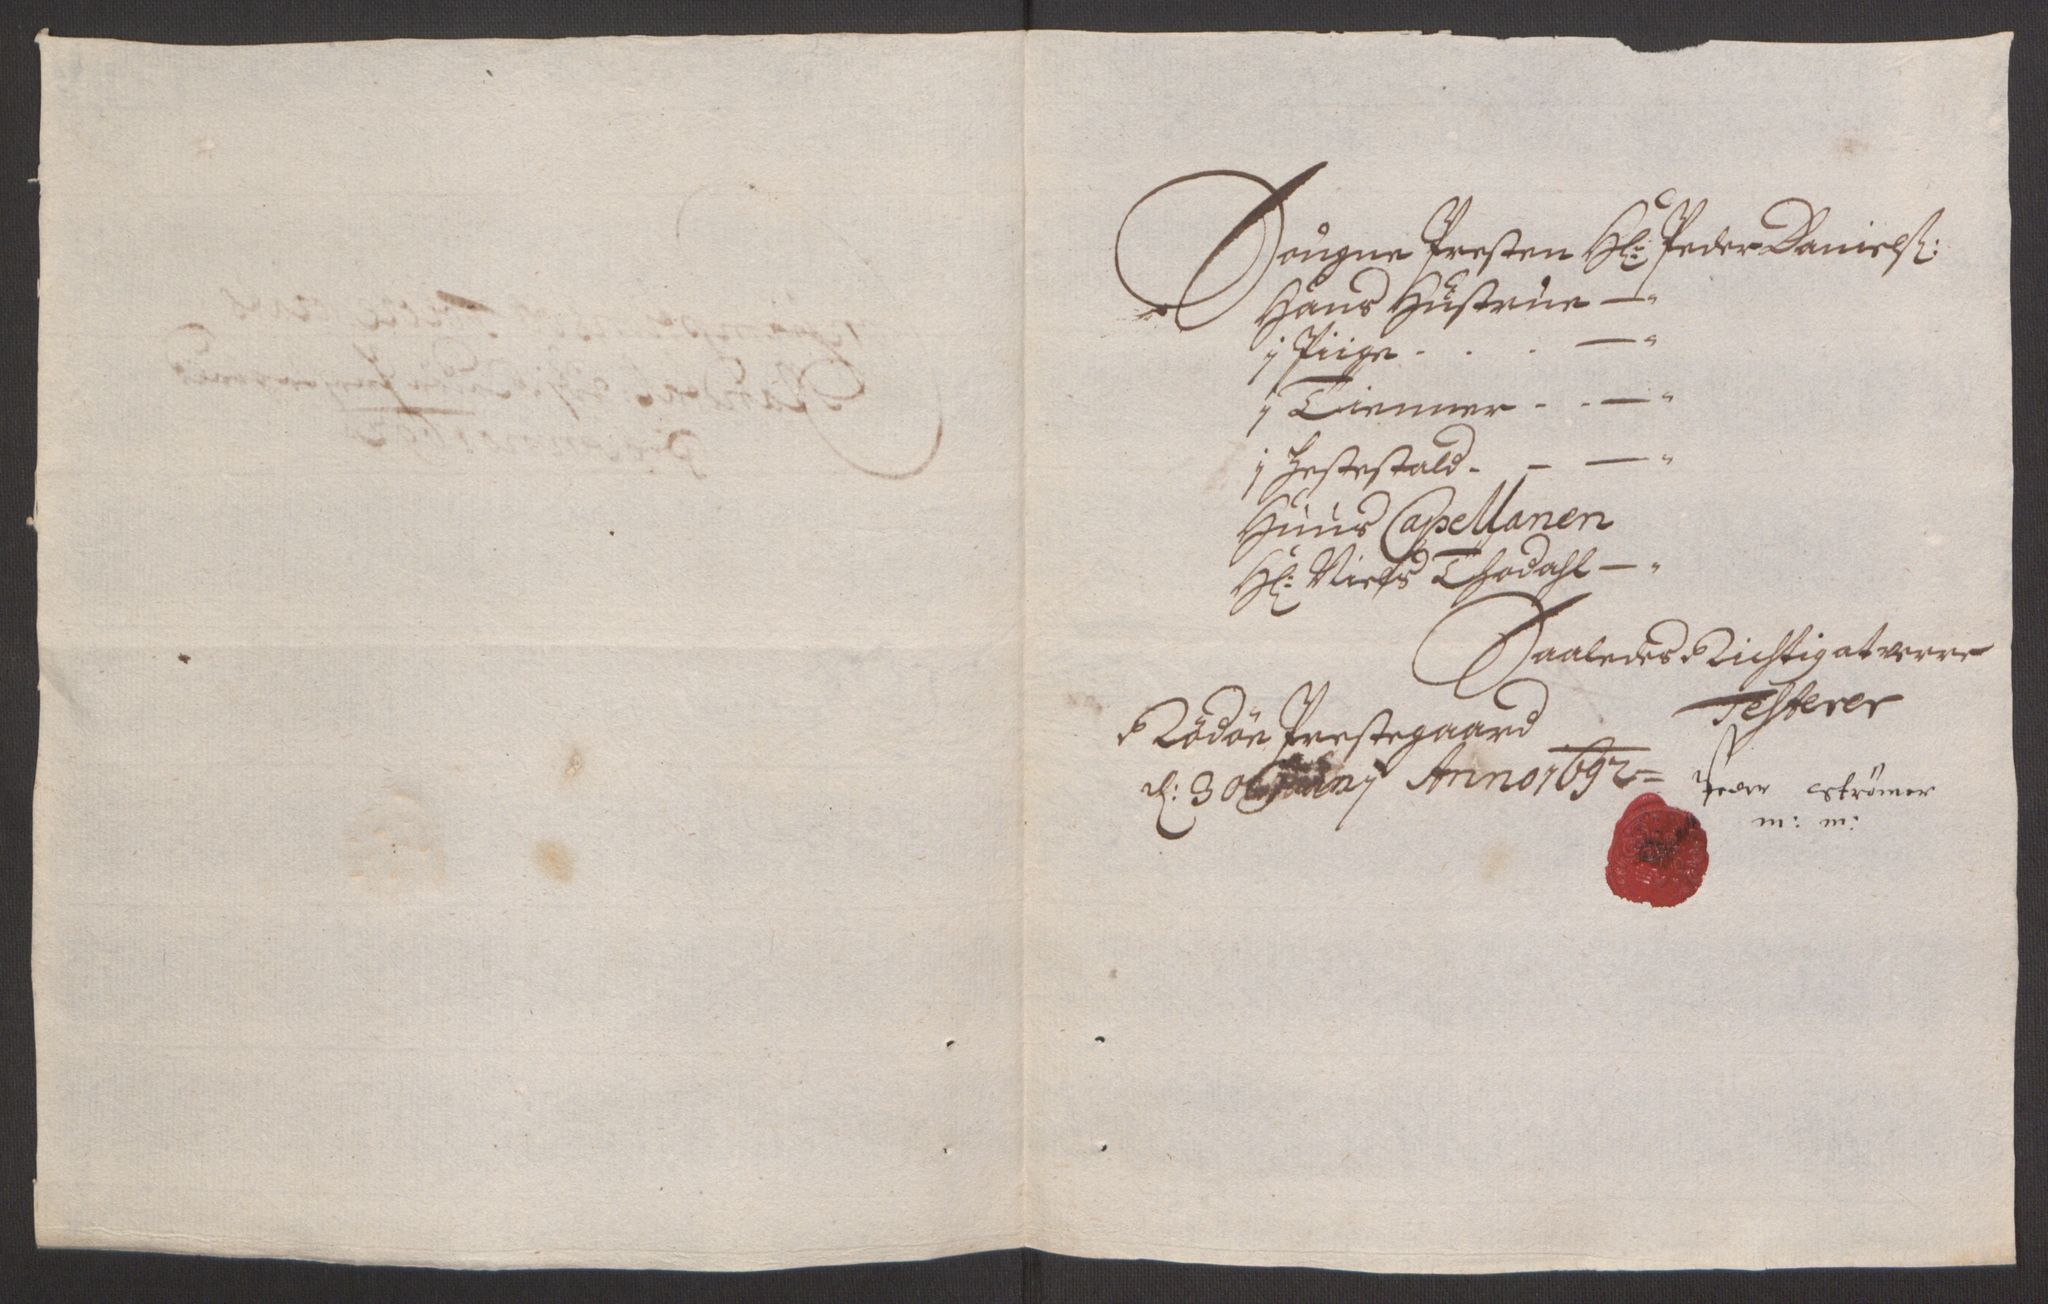 Sougne Presten Hl: Peder Daniels:
Hans Hustrue — "
1 Piige . . . — "
1 Tienner . . — "
1 Hestestald . — — "
Huus Capellanen
Hl: Niels Thodahl — "
Saaledes Richtig at verre
Testerer
Rödöe Prestegaard
d: 30 Juny Anno 1692 =
Peder Strömer
m: m: